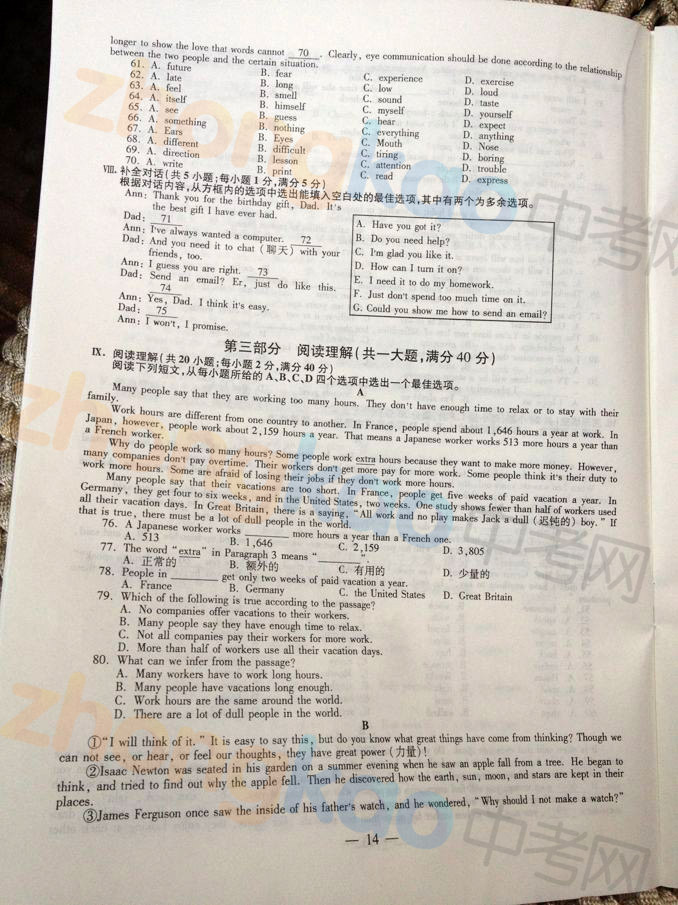 longer to show the love that words cannot 70 . Clearly, eye communication should be done according to the relationship
between the two people and the certain situation.
61. A. future B. fear C. experience D. exercise
62. A. late B. long C. low D. loud
63. A. feel B. smell C. sound D. taste
64. A. itself B. himself C. myself D. yourself
65. A. see B. guess C. hear D. expect
66. A. something B. nothing C. everything D. anything
67. A. Ears B. Eyes C. Mouth D. Nose
68. A. different B. difficult C. tiring D. boring
69. A. direction B. lesson C. attention D. trouble
70. A. write B. print C. read D. express
Ⅷ. 补全对话(共5小题;每小题1分,满分5分)
根据对话内容,从方框内的选项中选出能填入空白处的最佳选项,其中有两个为多余选项。
Ann: Thank you for the birthday gift, Dad. It's
the best gift I have ever had.
Dad: 71
Ann: I've always wanted a computer. 72
Dad: And you need it to chat (聊天) with your
friends, too.
Ann: I guess you are right. 73
Dad: Send an email? Er, just do like this.
74
Ann: Yes, Dad. I think it's easy.
Dad: 75
Ann: I won't, I promise.
A. Have you got it?
B. Do you need help?
C. I'm glad you like it.
D. How can I turn it on?
E. I need it to do my homework.
F. Just don't spend too much time on it.
G. Could you show me how to send an email?
第三部分 阅读理解(共一大题,满分40分)
Ⅸ. 阅读理解(共20小题;每小题2分,满分40分)
阅读下列短文,从每小题所给的A、B、C、D四个选项中选出一个最佳选项。
A
Many people say that they are working too many hours. They don't have enough time to relax or to stay with their
family.
Work hours are different from one country to another. In France, people spend about 1,646 hours a year at work. In
Japan, however, people work about 2,159 hours a year. That means a Japanese worker works 513 more hours a year than
a French worker.
Why do people work so many hours? Some people work extra hours because they want to make more money. However,
many companies don't pay overtime. Their workers don't get more pay for more work. Some people think it's their duty to
work more hours. Some are afraid of losing their jobs if they don't work more hours.
Many people say that their vacations are too short. In France, people get five weeks of paid vacation a year. In
Germany, they get four to six weeks, and in the United States, two weeks. One study shows fewer than half of workers used
all their vacation days. In Great Britain, there is a saying, "All work and no play makes Jack a dull (迟钝的) boy." If
that is true, there must be a lot of dull people in the world.
76. A Japanese worker works ________ more hours a year than a French one.
A. 513 B. 1,646 C. 2,159 D. 3,805
77. The word "extra" in Paragraph 3 means "________".
A. 正常的 B. 额外的 C. 有用的 D. 少量的
78. People in ________ get only two weeks of paid vacation a year.
A. France B. Germany C. the United States D. Great Britain
79. Which of the following is true according to the passage?
A. No companies offer vacations to their workers.
B. Many people say they have enough time to relax.
C. Not all companies pay their workers for more work.
D. More than half of workers use all their vacation days.
80. What can we infer from the passage?
A. Many workers have to work long hours.
B. Many people have vacations long enough.
C. Work hours are the same around the world.
D. There are a lot of dull people in the world.
B
①"I will think of it." It is easy to say this, but do you know what great things have come from thinking? Though we
can not see, or hear, or feel our thoughts, they have great power (力量)!
②Isaac Newton was seated in his garden on a summer evening when he saw an apple fall from a tree. He began to
think, and tried to find out why the apple fell. Then he discovered how the earth, sun, moon, and stars are kept in their
places.
③James Ferguson once saw the inside of his father's watch, and he wondered, "Why should I not make a watch?"
— 14 —
zhongkao 中考网
zhongkao 中考网
zhongkao 中考网